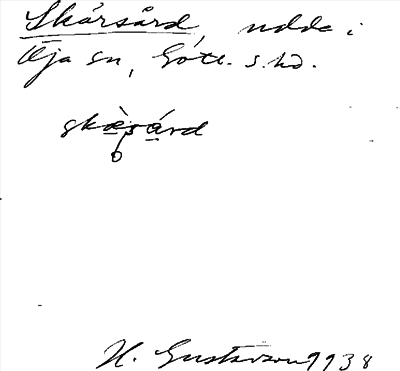 Skårsård, udde i
Öja sn, Gotl. s. hd.
skæ̀sárd
H. Gustavson 1938